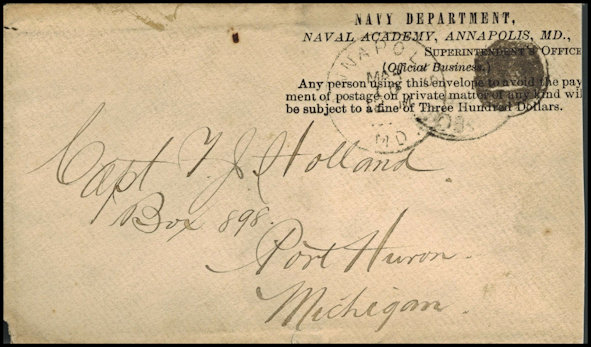 NAVY DEPARTMENT,
NAVAL ACADEMY, ANNAPOLIS, MD.,
SUPERINTENDENT'S OFFICE
(Official Business.)
Any person using this envelope to avoid the pay
ment of postage on private matter of any kind will
be subject to a fine of Three Hundred Dollars.
ANNAPOLIS
MD.
Capt T. J. Holland.
Box 898.
Port Huron.
Michigan.